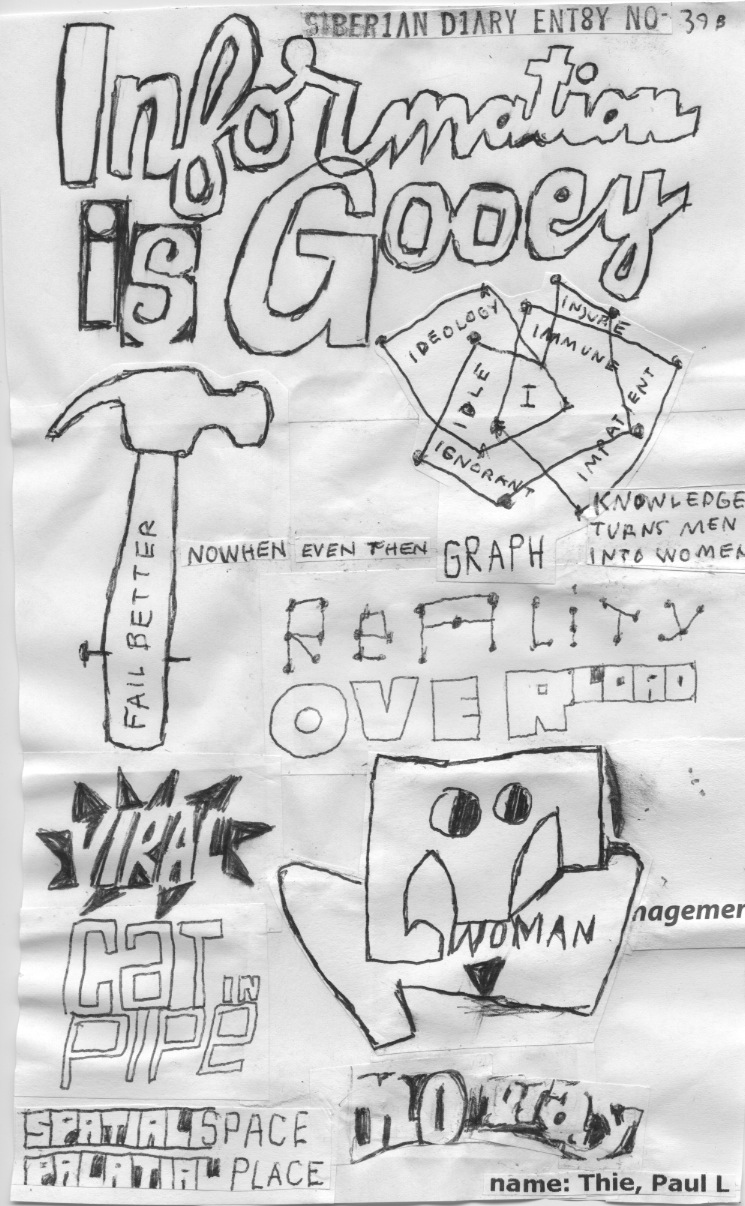 SIBER1AN D1ARY ENT8Y NO- 39B
Information
is Gooey
IDEOLOGY
INJURE
IMMUNE
IDLE
I
IMPATIENT
IGNORANT
KNOWLEDGE
TURNS MEN
INTO WOMEN
FAIL BETTER
NOWHEN EVEN THEN GRAPH
REALITY
OVERLOAD
VIRAL
WOMAN
nagemen
CAT IN
PIPE
NO way
SPATIAL SPACE
PALATIAL PLACE
name: Thie, Paul L